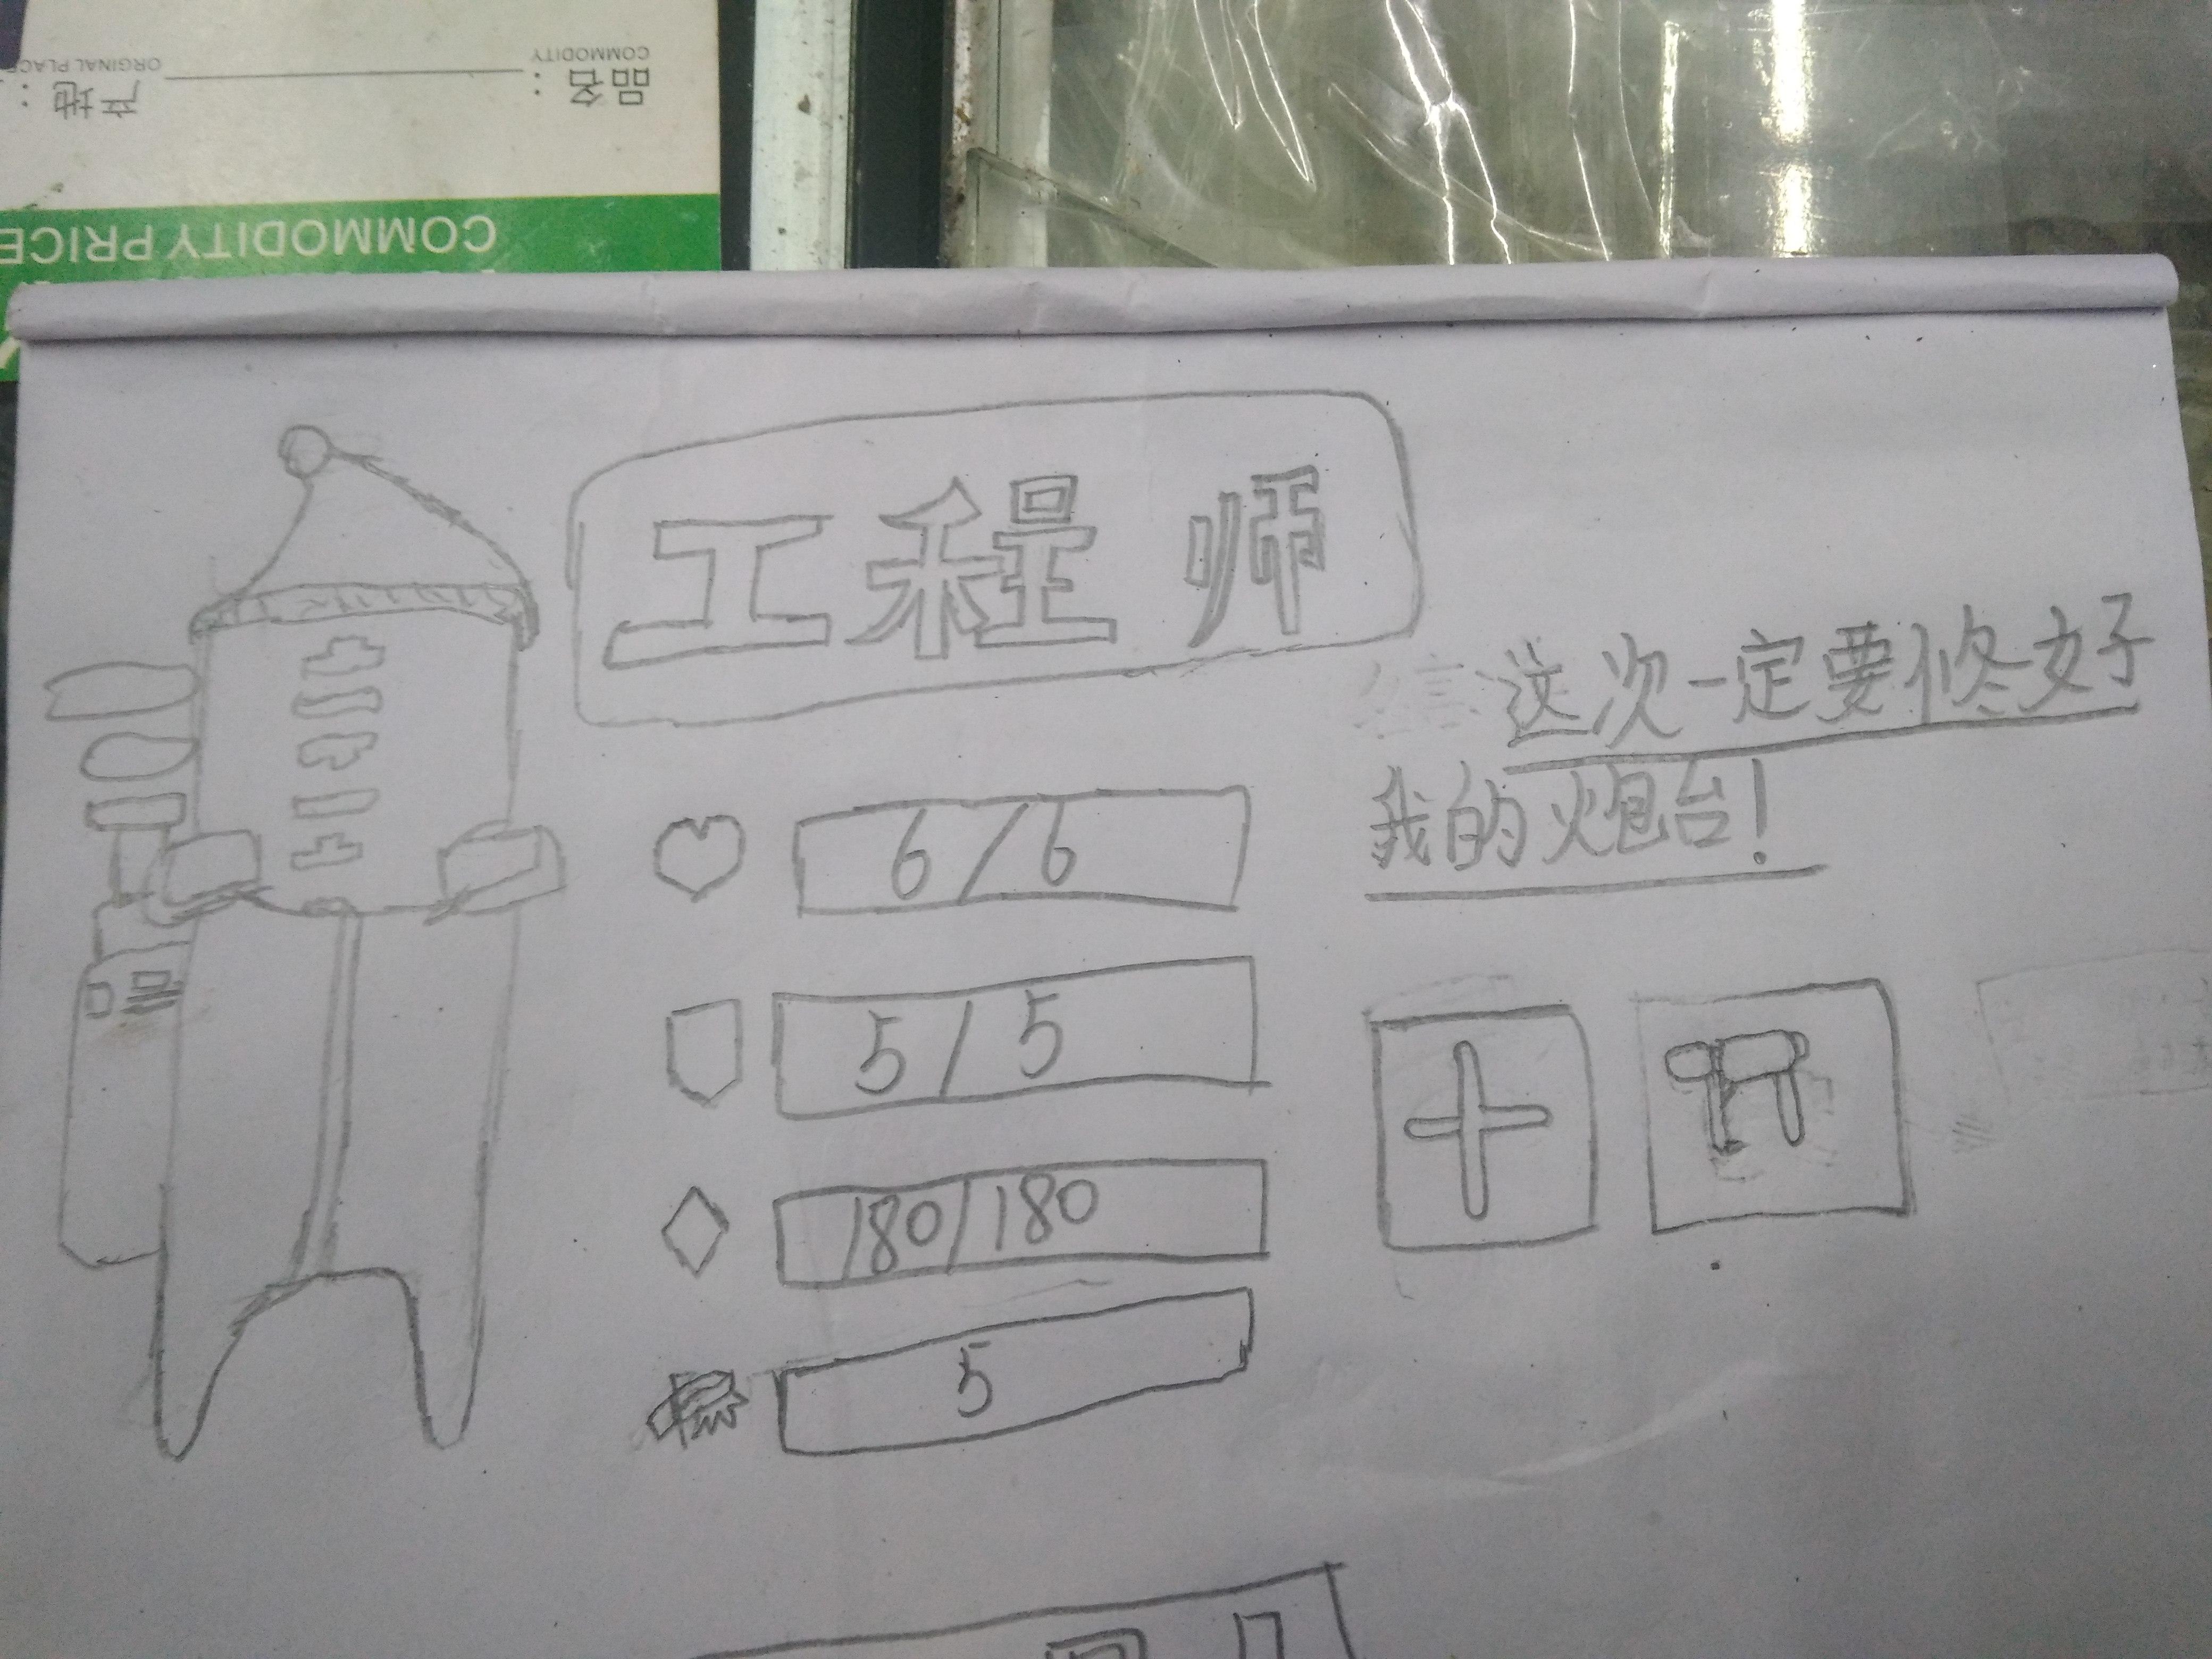 品名：
COMMODITY
产地：
COMMODITY PRICE
工程师
这次一定要修好
我的炮台！
6/6
5/5
180/180
5